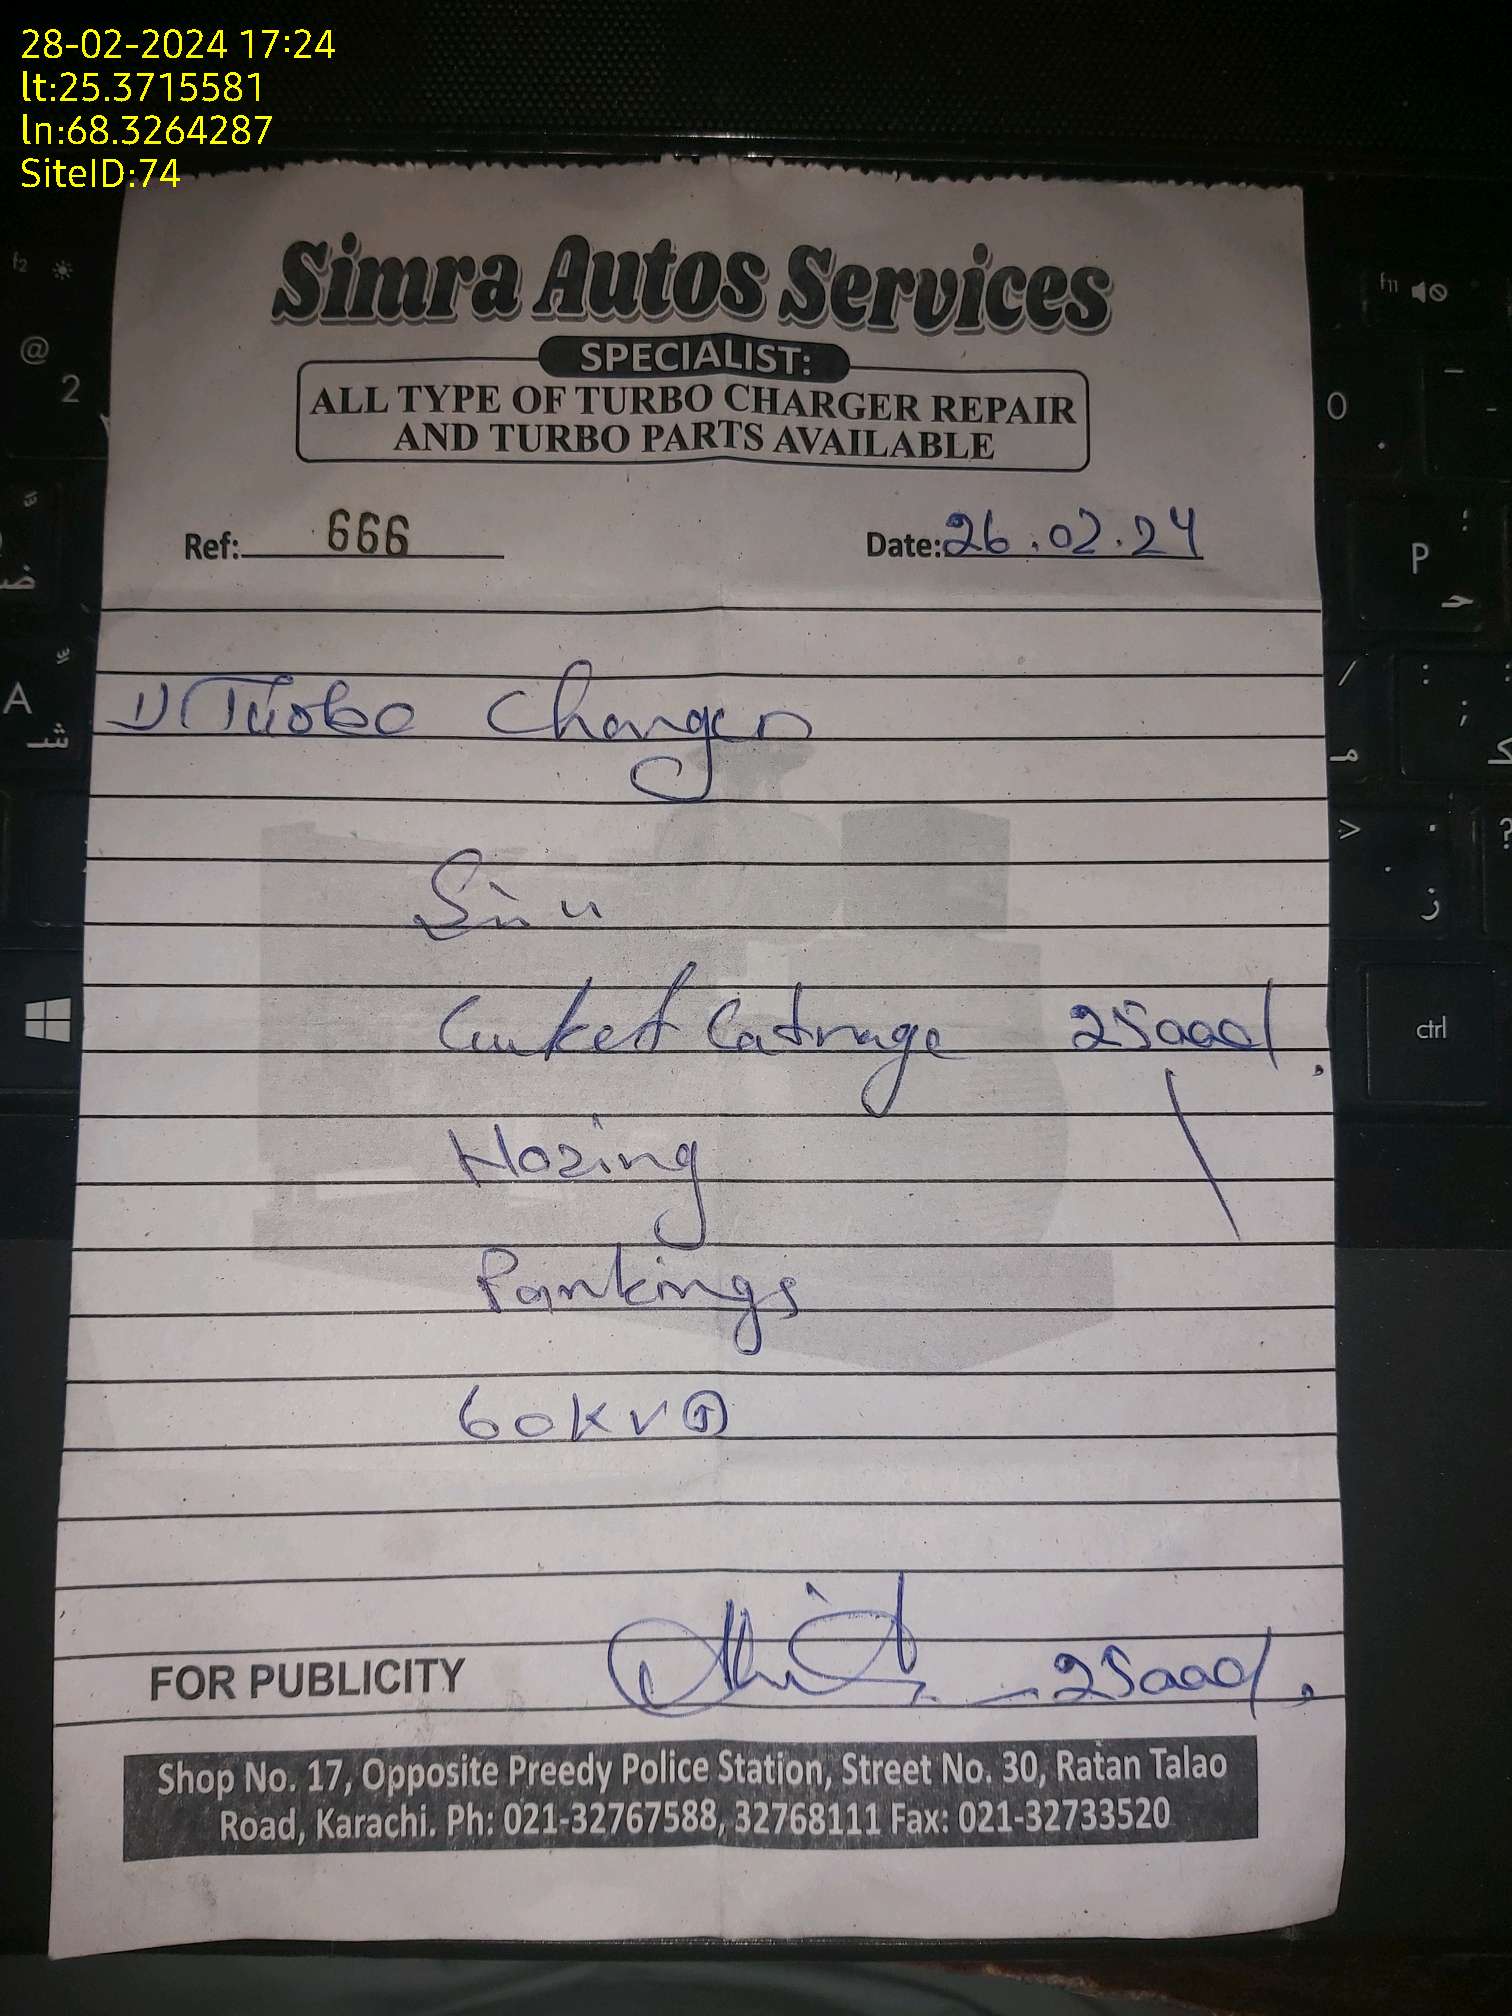 28-02-2024 17:24
lt:25.3715581
ln:68.3264287
SiteID:74
f2
f11
@
2
0
P
A
ctrl
Simra Autos Services
SPECIALIST:
ALL TYPE OF TURBO CHARGER REPAIR
AND TURBO PARTS AVAILABLE
Ref: 666 Date: 26.02.24
1) Turbo Charger
Catrage 25000/.
Hozing
60KVA
FOR PUBLICITY 25000/.
Shop No. 17, Opposite Preedy Police Station, Street No. 30, Ratan Talao
Road, Karachi. Ph: 021-32767588, 32768111 Fax: 021-32733520